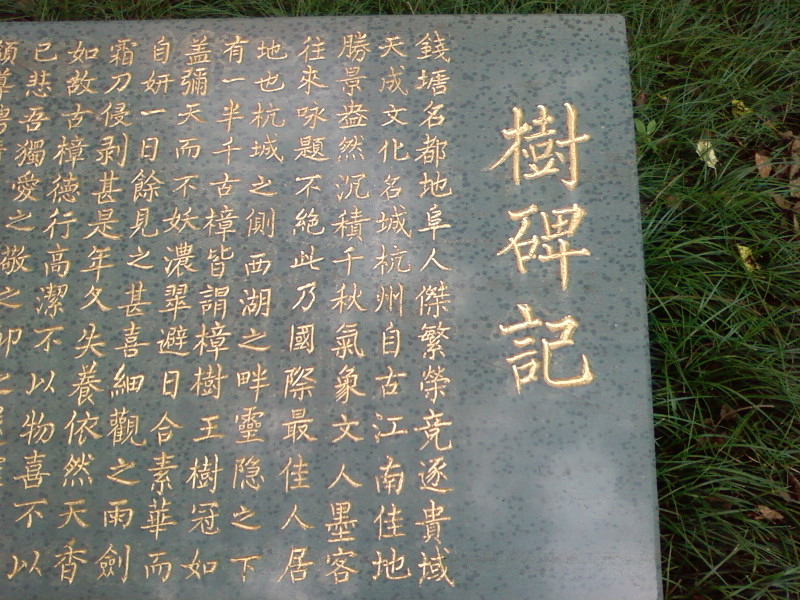 樹碑記
錢塘名都地阜人傑繁榮竞逐貴域
天成文化名城杭州自古江南佳地
勝景盎然沉積千秋氣象文人墨客
往來咏題不絕此乃國際最佳人居
地也杭城之側西湖之畔靈隐之下
有一半千古樟皆謂樟樹王樹冠如
盖彌天而不妖濃翠避日合素華而
自妍一日餘見之甚喜細觀之雨劍
霜刀侵剥甚是年久失養依然天香
如故古樟德行高潔不以物喜不以
已悲吾獨愛之敬之